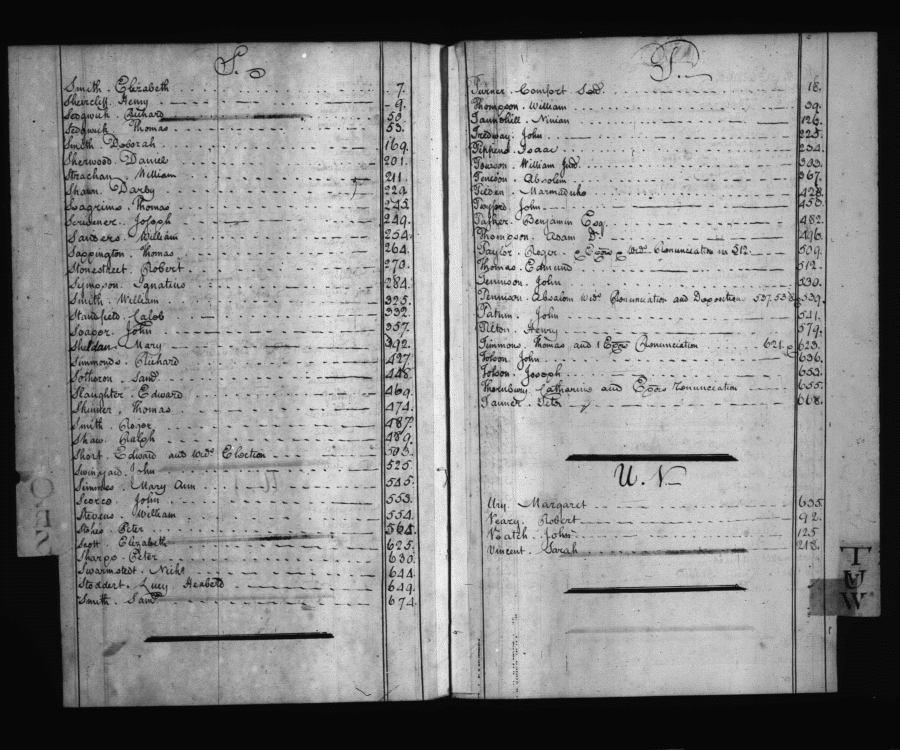 S.
Smith. Elizabeth 7.
Sheircliff. Henry 9.
Sedgwick. Richard 50.
Sedgwick. Thomas 53.
Smith Deborah 169.
Sherwood. Daniel 201.
Strachan. William 211.
Shawn Darby 229.
Seagrims. Thomas 245.
Scrivener. Joseph 249.
Sanders. William 254.
Sappington. Thomas 264.
Stonestreet. Robert 270.
Sympson. Ignatius 284.
Smith. William 325.
Standfield. Caleb 332.
Soaper. John 357.
Sheldan. Mary 392.
Simmonds. Richard 427.
Sotheron. Saml. 448.
Slaughter. Edward 469.
Skinner. Thomas 474.
Smith. Roger 487.
Shaw. Ralph 489.
Short. Edward and Wid.s Election 503.
Swinyard. John 525.
Simmes. Mary Ann 545.
Scorce. John 553.
Stevens. William 554.
Stokes. Peter 564.
Scott. Elizabeth 625.
Sharpe. Peter 630.
Swarmstedt. Nichs. 644.
Stoddert. Lucy Heaberd 649.
Smith. Saml. 674.
T.
Turner. Comfort Senr. 18.
Thompson. William 39.
Tannehill. Ninian 126.
Tredway. John 225.
Tippens. Isaac 234.
Towson. William Junr. 303.
Tenison. Absolem 367.
Tilden. Marmaduke 428.
Twyford. John 453.
Tasker. Benjamin Esq. 482.
Thompson. Adam Dr. 496.
Taylor. Roger. Wid.s Renunciation in 512. 509.
Thomas. Edmund 512.
Tennison. John 530.
Tennison. Absalom Wid.s Renunciation and Deposition 537.538. 539.
Tatum. John 541.
Tilton. Henry 579.
Timmons. Thomas. and 1 Exors Renunciation 621. 623.
Tolson. John 636.
Tolson. Joseph 653.
Thornbury. Catharine and Exors Renunciation 655.
Tanner. Peter 668.
U. V
Ury. Margaret 635.
Veary. Robert 92.
Veatch. John 125
Vincent. Sarah 218.
T
U V
W